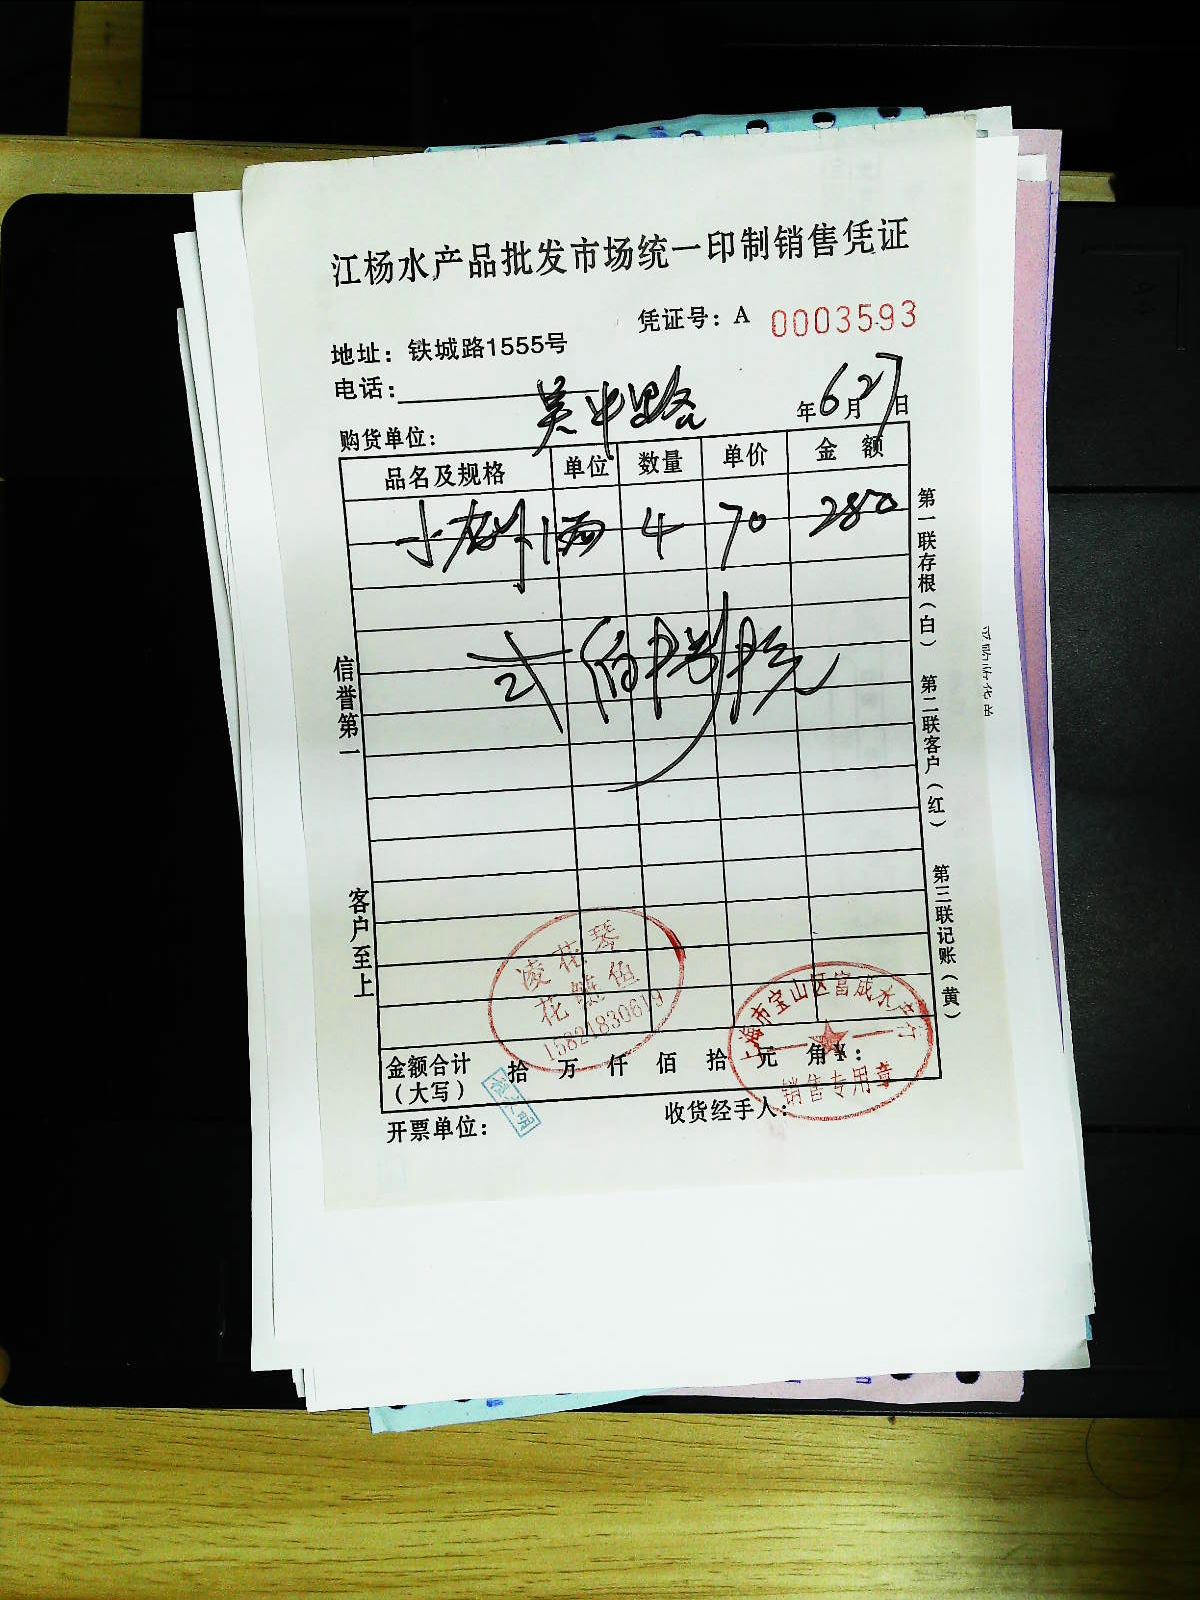 江杨水产品批发市场统一印制销售凭证
凭证号：A 0003593
地址：铁城路1555号
电话：
购货单位： 吴中路 年6月27日
品名及规格 单位 数量 单价 金 额
小龙虾 4 70 280
弍佰捌拾元
信誉第一
客户至上
第一联存根（白）
第二联客户（红）
第三联记账（黄）
凌花琴
花鲢鱼
15821830619
上海市宝山区富成水产行
销售专用章
金额合计（大写） 拾 万 仟 佰 拾 元 角 ¥：
开票单位：
收货经手人：